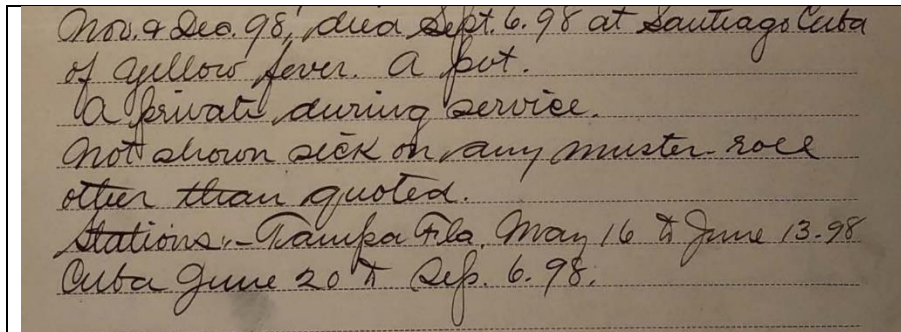 Nov. & Dec. 98, died Sept. 6. 98 at Santiago Cuba
of yellow fever. A pvt.
A private during service.
Not shown sick on any muster-roll
other than quoted.
Stations:- Tampa Fla. May 16 to June 13-98
Cuba June 20 to Sep. 6. 98.